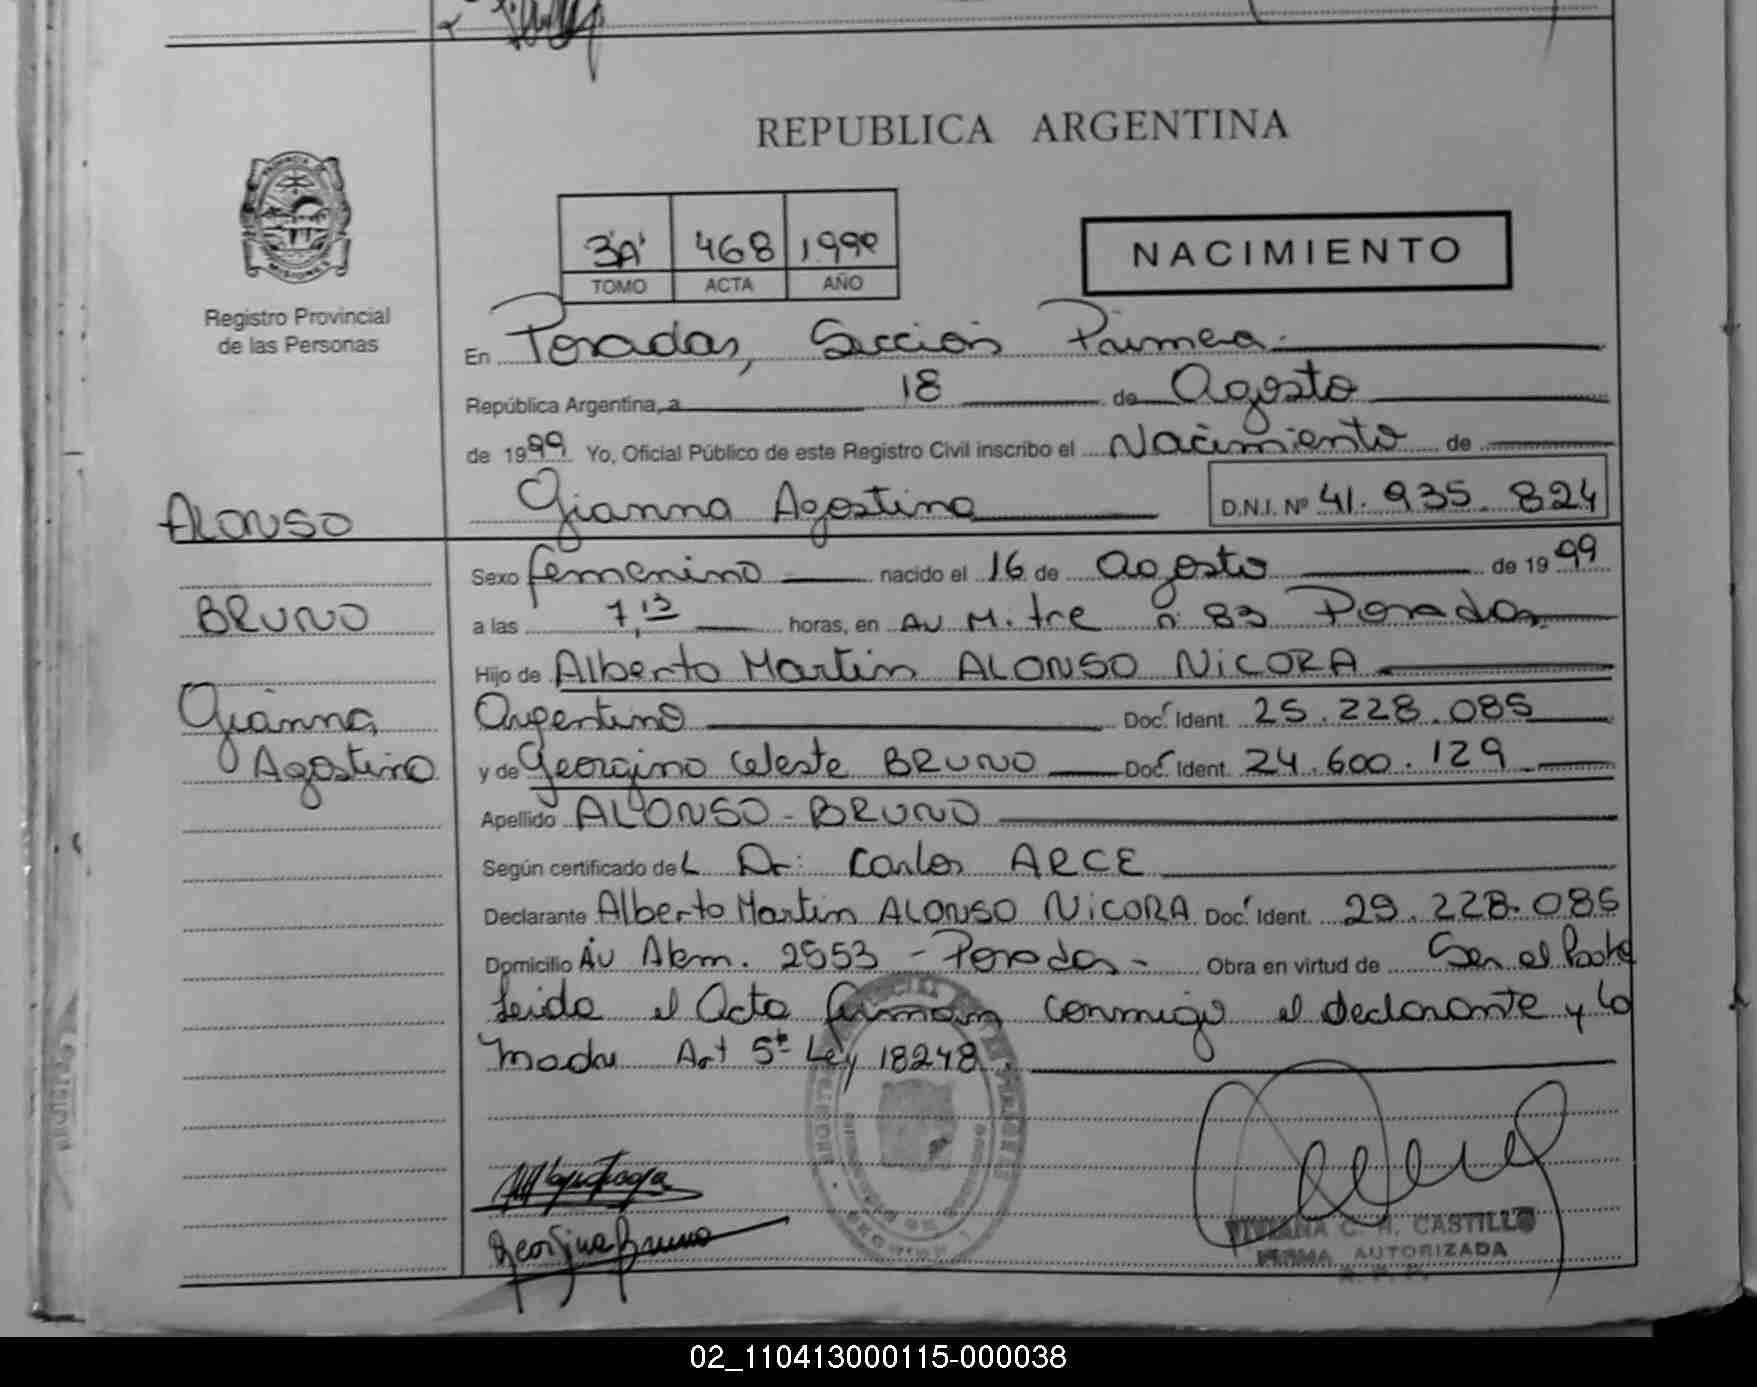 REPUBLICA ARGENTINA
PROVINCIA DE
MISIONES
Registro Provincial
de las Personas
3'A' 468 1999
TOMO ACTA AÑO
NACIMIENTO
En Posadas, Seccion Primera.
República Argentina, a 18 de Agosto
de 1999 Yo, Oficial Público de este Registro Civil inscribo el Nacimiento de
Gianna Agostina D.N.I. Nº 41.935.824
ALONSO
BRUNO
Gianna
Agostina
Sexo femenino nacido el 16 de agosto de 1999
a las 7,13 horas, en Av Mitre nº 83 Posadas
Hijo de Alberto Martin ALONSO NICORA
Argentino Docº Ident. 25.228.085
y de Georgina Celeste BRUNO Docº Ident. 24.600.129
Apellido ALONSO - BRUNO
Según certificado del Dr: Carlos ARCE
Declarante Alberto Martin ALONSO NICORA Docº Ident. 25.228.085
Domicilio Av Alem. 2553 - Posadas - Obra en virtud de Ser el Padre
Leida el Acta firman conmigo el declarante y la
madre Art 5º Ley 18248.
Georgina Bruno
VIVIANA C. H. CASTILLO
FIRMA AUTORIZADA
R. P. P.
02_110413000115-000038